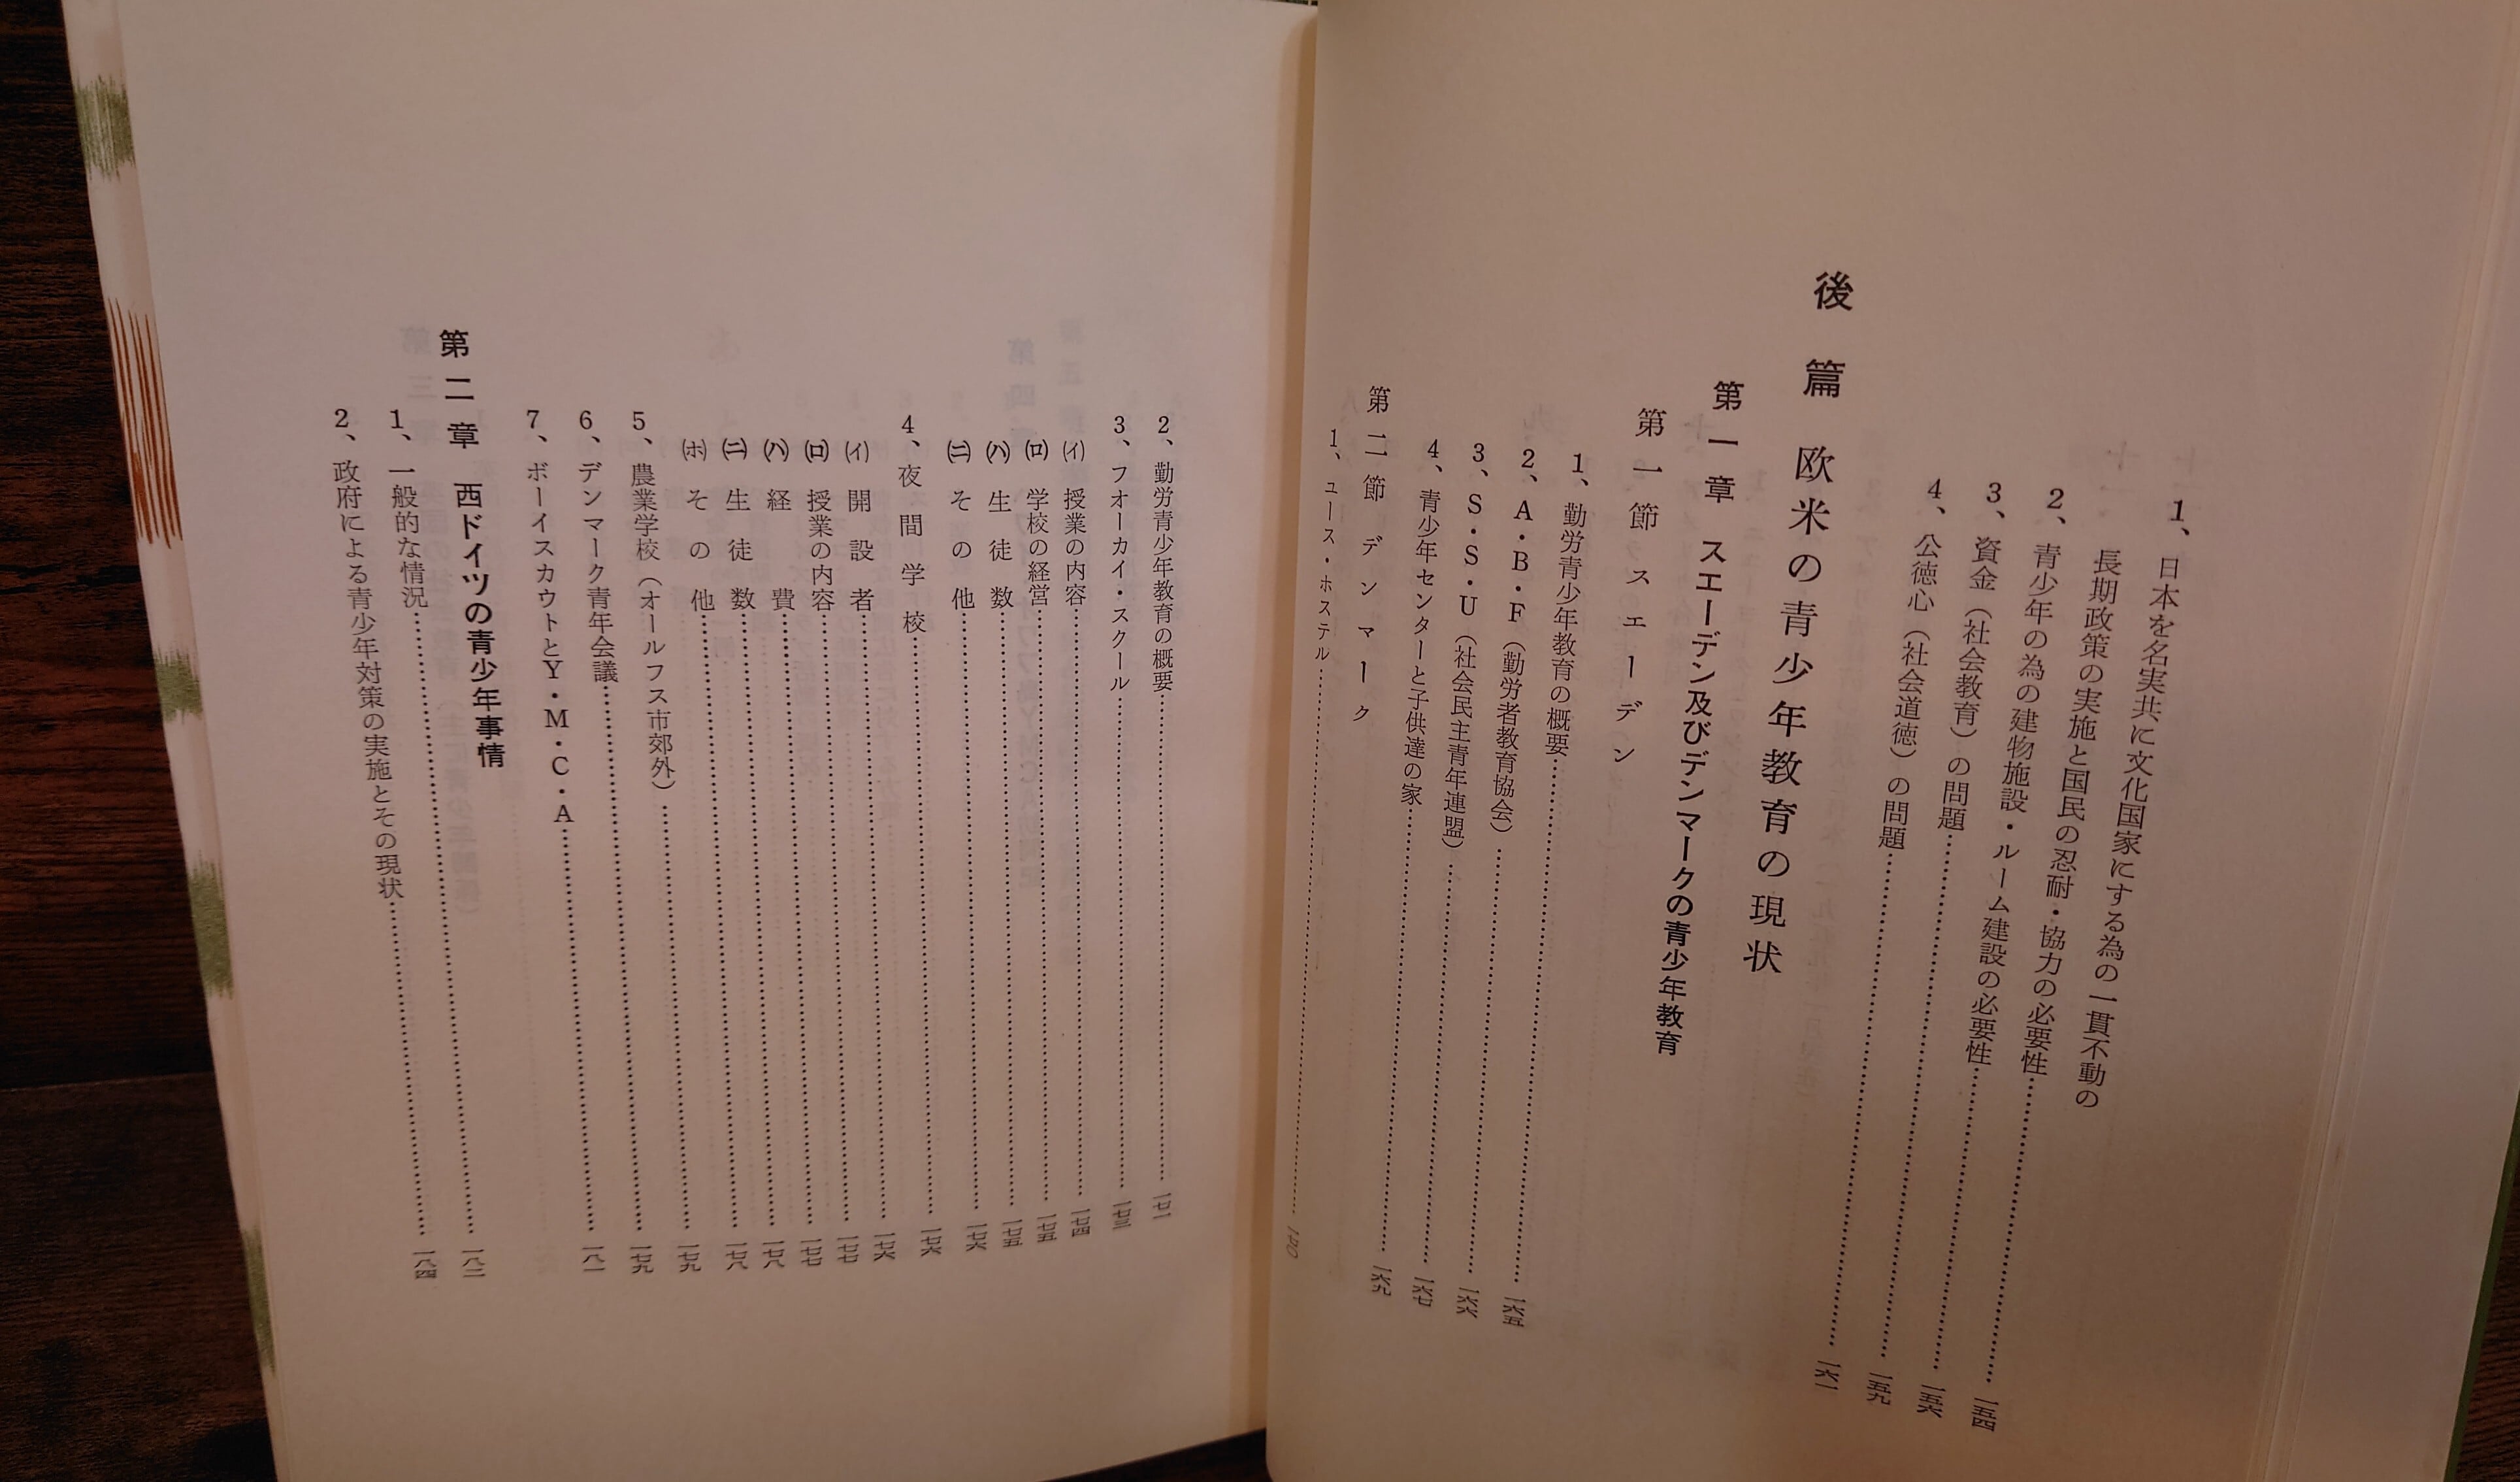 1、日本を名実共に文化国家にする為の一貫不動の
長期政策の実施と国民の忍耐・協力の必要性……一五四
2、青少年の為の建物施設・ルーム建設の必要性……一五六
3、資金(社会教育)の問題……一五九
4、公徳心(社会道徳)の問題……一六一
後篇 欧米の青少年教育の現状
第一章 スエーデン及びデンマークの青少年教育
第一節 スエーデン
1、勤労青少年教育の概要……一六五
2、A・B・F(勤労者教育協会)……一六六
3、S・S・U(社会民主青年連盟)……一六七
4、青少年センターと子供達の家……一六九
第二節 デンマーク
1、ユース・ホステル……一七〇
2、勤労青少年教育の概要……一七一
3、フオーカイ・スクール……一七三
(イ) 授業の内容……一七四
(ロ) 学校の経営……一七五
(ハ) 生徒数……一七五
(ニ) その他……一七六
4、夜間学校……一七六
(イ) 開設者……一七六
(ロ) 授業の内容……一七七
(ハ) 経費……一七七
(ニ) 生徒数……一七八
(ホ) その他……一七八
5、農業学校(オールフス市郊外)……一七九
6、デンマーク青年会議……一七九
7、ボーイスカウトとY・M・C・A……一八一
第二章 西ドイツの青少年事情
1、一般的な情況……一八二
2、政府による青少年対策の実施とその現状……一八四